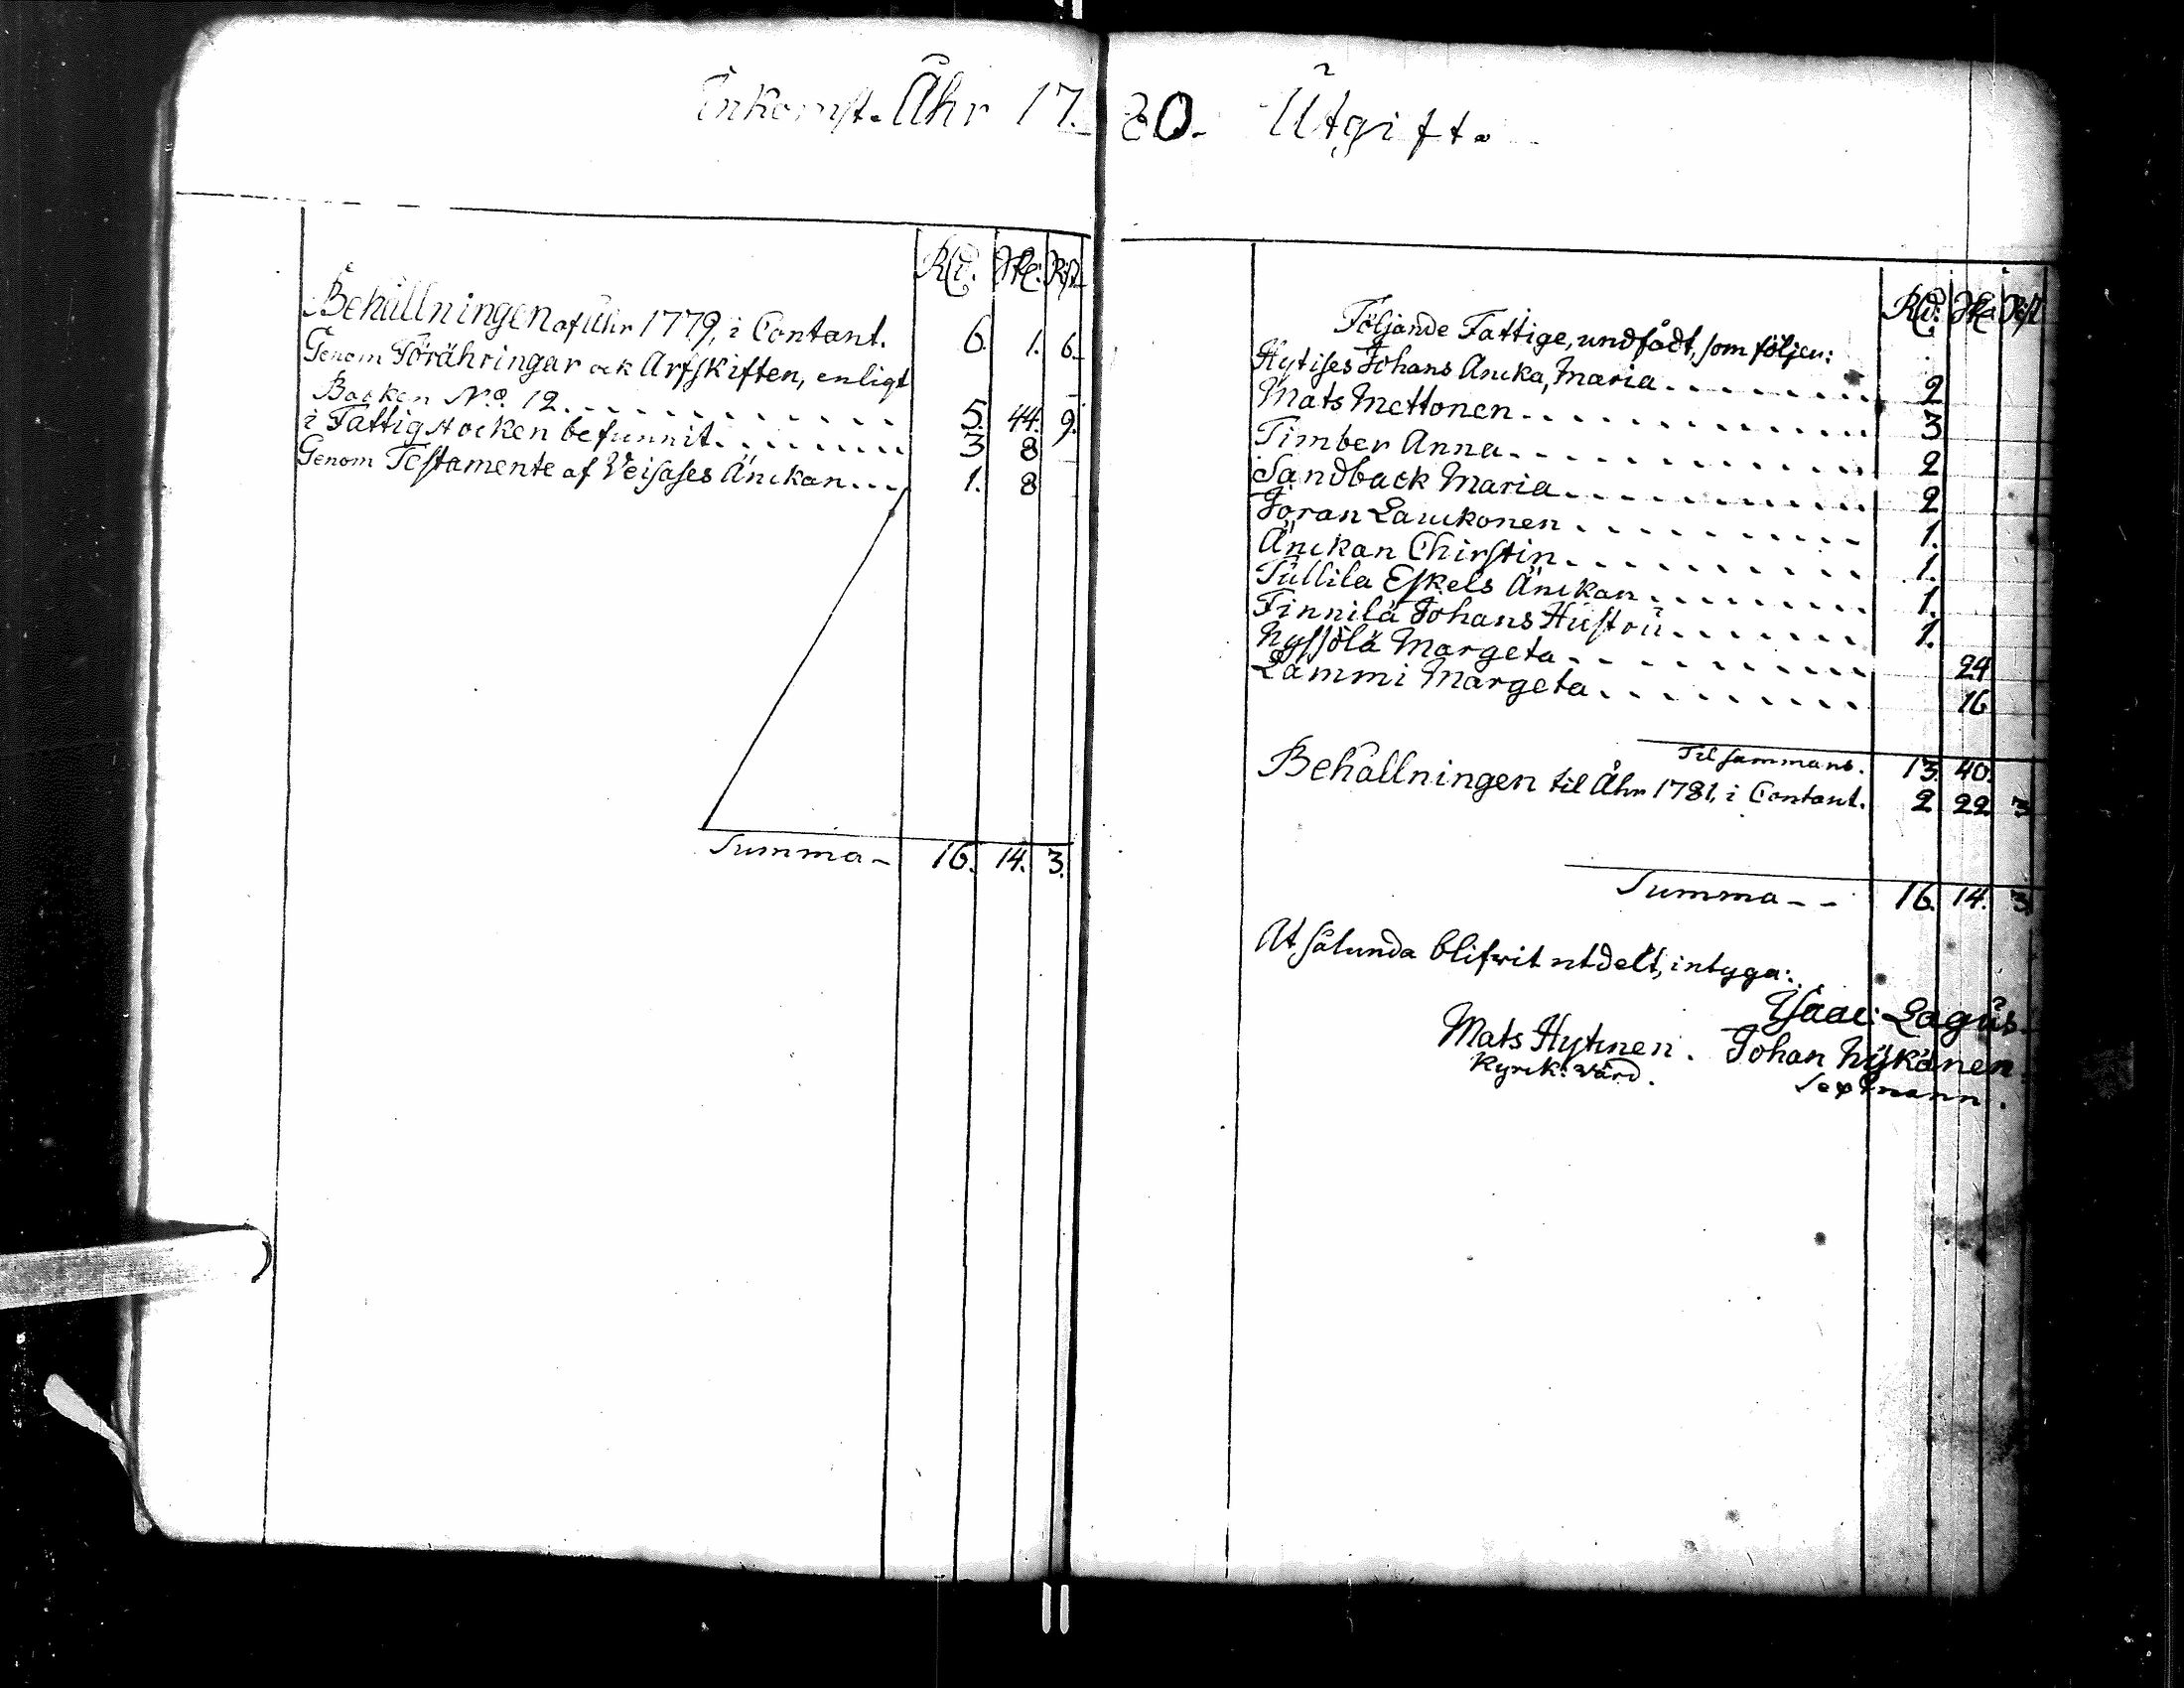 Inkomst. Åhr 17.
80. Utgift.
Rd: Sk: Rst.
Behållningen af Åhr 1779, i Contant. 6. 1. 6.
Genom Förähringar ock Arfskiften, enligt
Boken No. 12. 5. 44. 9.
i Fattigstocken befunnit. 3 8
Genom Testamente af Veisases Änckan. 1. 8
Summa - 16. 14. 3.
Rd: Sk: Rst
Följande Fattige, undfådt, som följer:
Hytises Johans Ancka, Maria 2
Mats Mettonen 3
Timber Anna 2
Sandback Maria 2
Jöran Lauckonen 1.
Änckan Chirstin 1.
Tullila Eskels Änckan 1.
Finnilä Johans Hustru 1.
Nyssölä Margeta 24
Lammi Margeta 16
Til sammans. 13. 40.
Behållningen til Åhr 1781, i Contant. 2 22 3
Summa - - 16. 14. 3
At sålunda blifwit utdelt, intyga:
Isaac: Lagus
Mats Hytinen. Johan Nyskänen
Kyrck: Wärd. Sexmann.